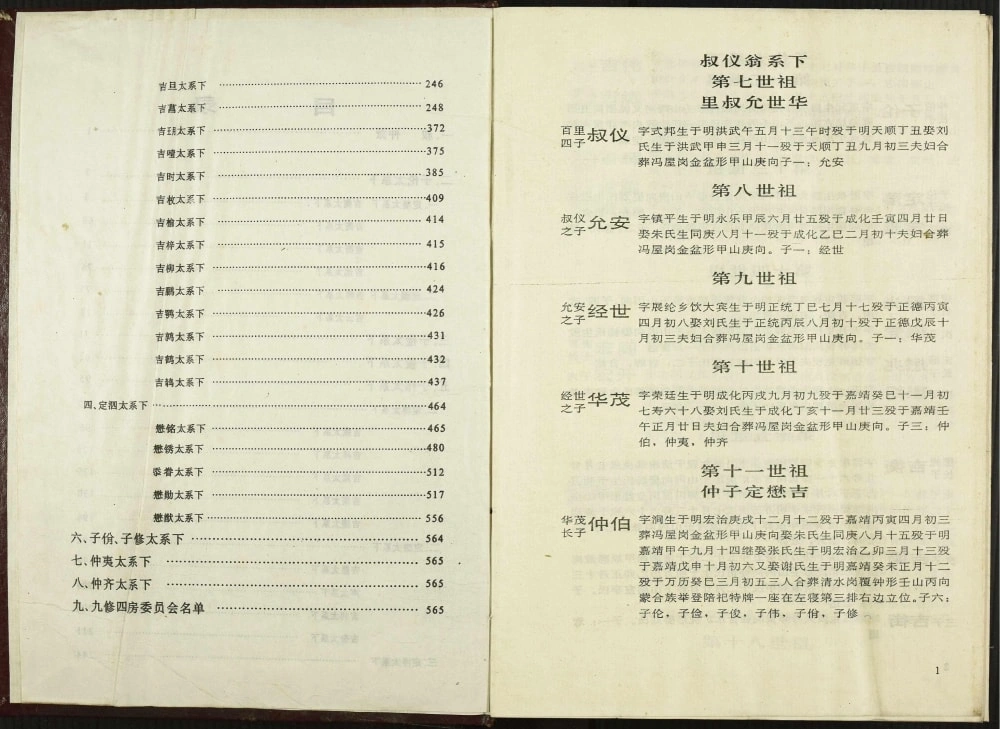 吉旦太系下 ……………………………… 246
吉菖太系下 ……………………………… 248
吉 太系下 ……………………………… 372
吉噎太系下 ……………………………… 375
吉时太系下 ……………………………… 385
吉枚太系下 ……………………………… 409
吉榆太系下 ……………………………… 414
吉梓太系下 ……………………………… 415
吉柳太系下 ……………………………… 416
吉鹏太系下 ……………………………… 424
吉鹗太系下 ……………………………… 426
吉鹑太系下 ……………………………… 431
吉鹤太系下 ……………………………… 432
吉鸫太系下 ……………………………… 437
四、定泗太系下 ……………………………… 464
懋铭太系下 ……………………………… 465
懋锈太系下 ……………………………… 480
太系下 ……………………………… 512
懋勋太系下 ……………………………… 517
懋猷太系下 ……………………………… 556
六、子份、子修太系下 ……………………………… 564
七、仲夷太系下 ……………………………… 565
八、仲齐太系下 ……………………………… 565
九、九修四房委员会名单 ……………………………… 565
叔仪翁系下
第七世祖
里叔允世华
百里四子 叔仪 字式邦生于明洪武午五月十三午时殁于明天顺丁丑娶刘
氏生于洪武甲申三月十一殁于天顺丁丑九月初三夫妇合
葬冯屋岗金盆形甲山庚向子一：允安
第八世祖
叔仪之子 允安 字镇平生于明永乐甲辰六月廿五殁于成化壬寅四月廿日
娶朱氏生同庚八月十一殁于成化乙巳二月初十夫妇合葬
冯屋岗金盆形甲山庚向。子一：经世
第九世祖
允安之子 经世 字展纶乡饮大宾生于明正统丁巳七月十七殁于正德丙寅
四月初八娶刘氏生于正统丙辰八月初十殁于正德戊辰十
月初三夫妇合葬冯屋岗金盆形甲山庚向。子一：华茂
第十世祖
经世之子 华茂 字荣廷生于明成化丙戌九月初九殁于嘉靖癸巳十一月初
七寿六十八娶刘氏生于成化丁亥十一月廿三殁于嘉靖壬
午正月廿日夫妇合葬冯屋岗金盆形甲山庚向。子三：仲
伯，仲夷，仲齐
第十一世祖
仲子定懋吉
华茂长子 仲伯 字涧生于明宏治庚戌十二月十二殁于嘉靖丙寅四月初三
葬冯屋岗金盆形甲山庚向娶朱氏生同庚八月十五殁于明
嘉靖甲午九月十四继娶张氏生于明宏治乙卯三月十三殁
于嘉靖戊申十月初六又娶谢氏生于明嘉靖癸未正月十二
殁于万历癸巳三月初五三人合葬清水岗覆钟形壬山丙向
蒙合族举登陪祀特牌一座在左寝第三排右边立位。子六：
子伦，子俭，子俊，子伟，子佾，子修
1